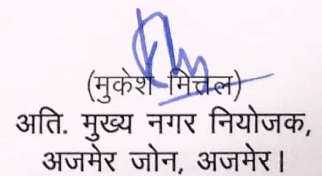 (मुकेश मित्तल)
अति. मुख्य नगर नियोजक,
अजमेर जोन, अजमेर।